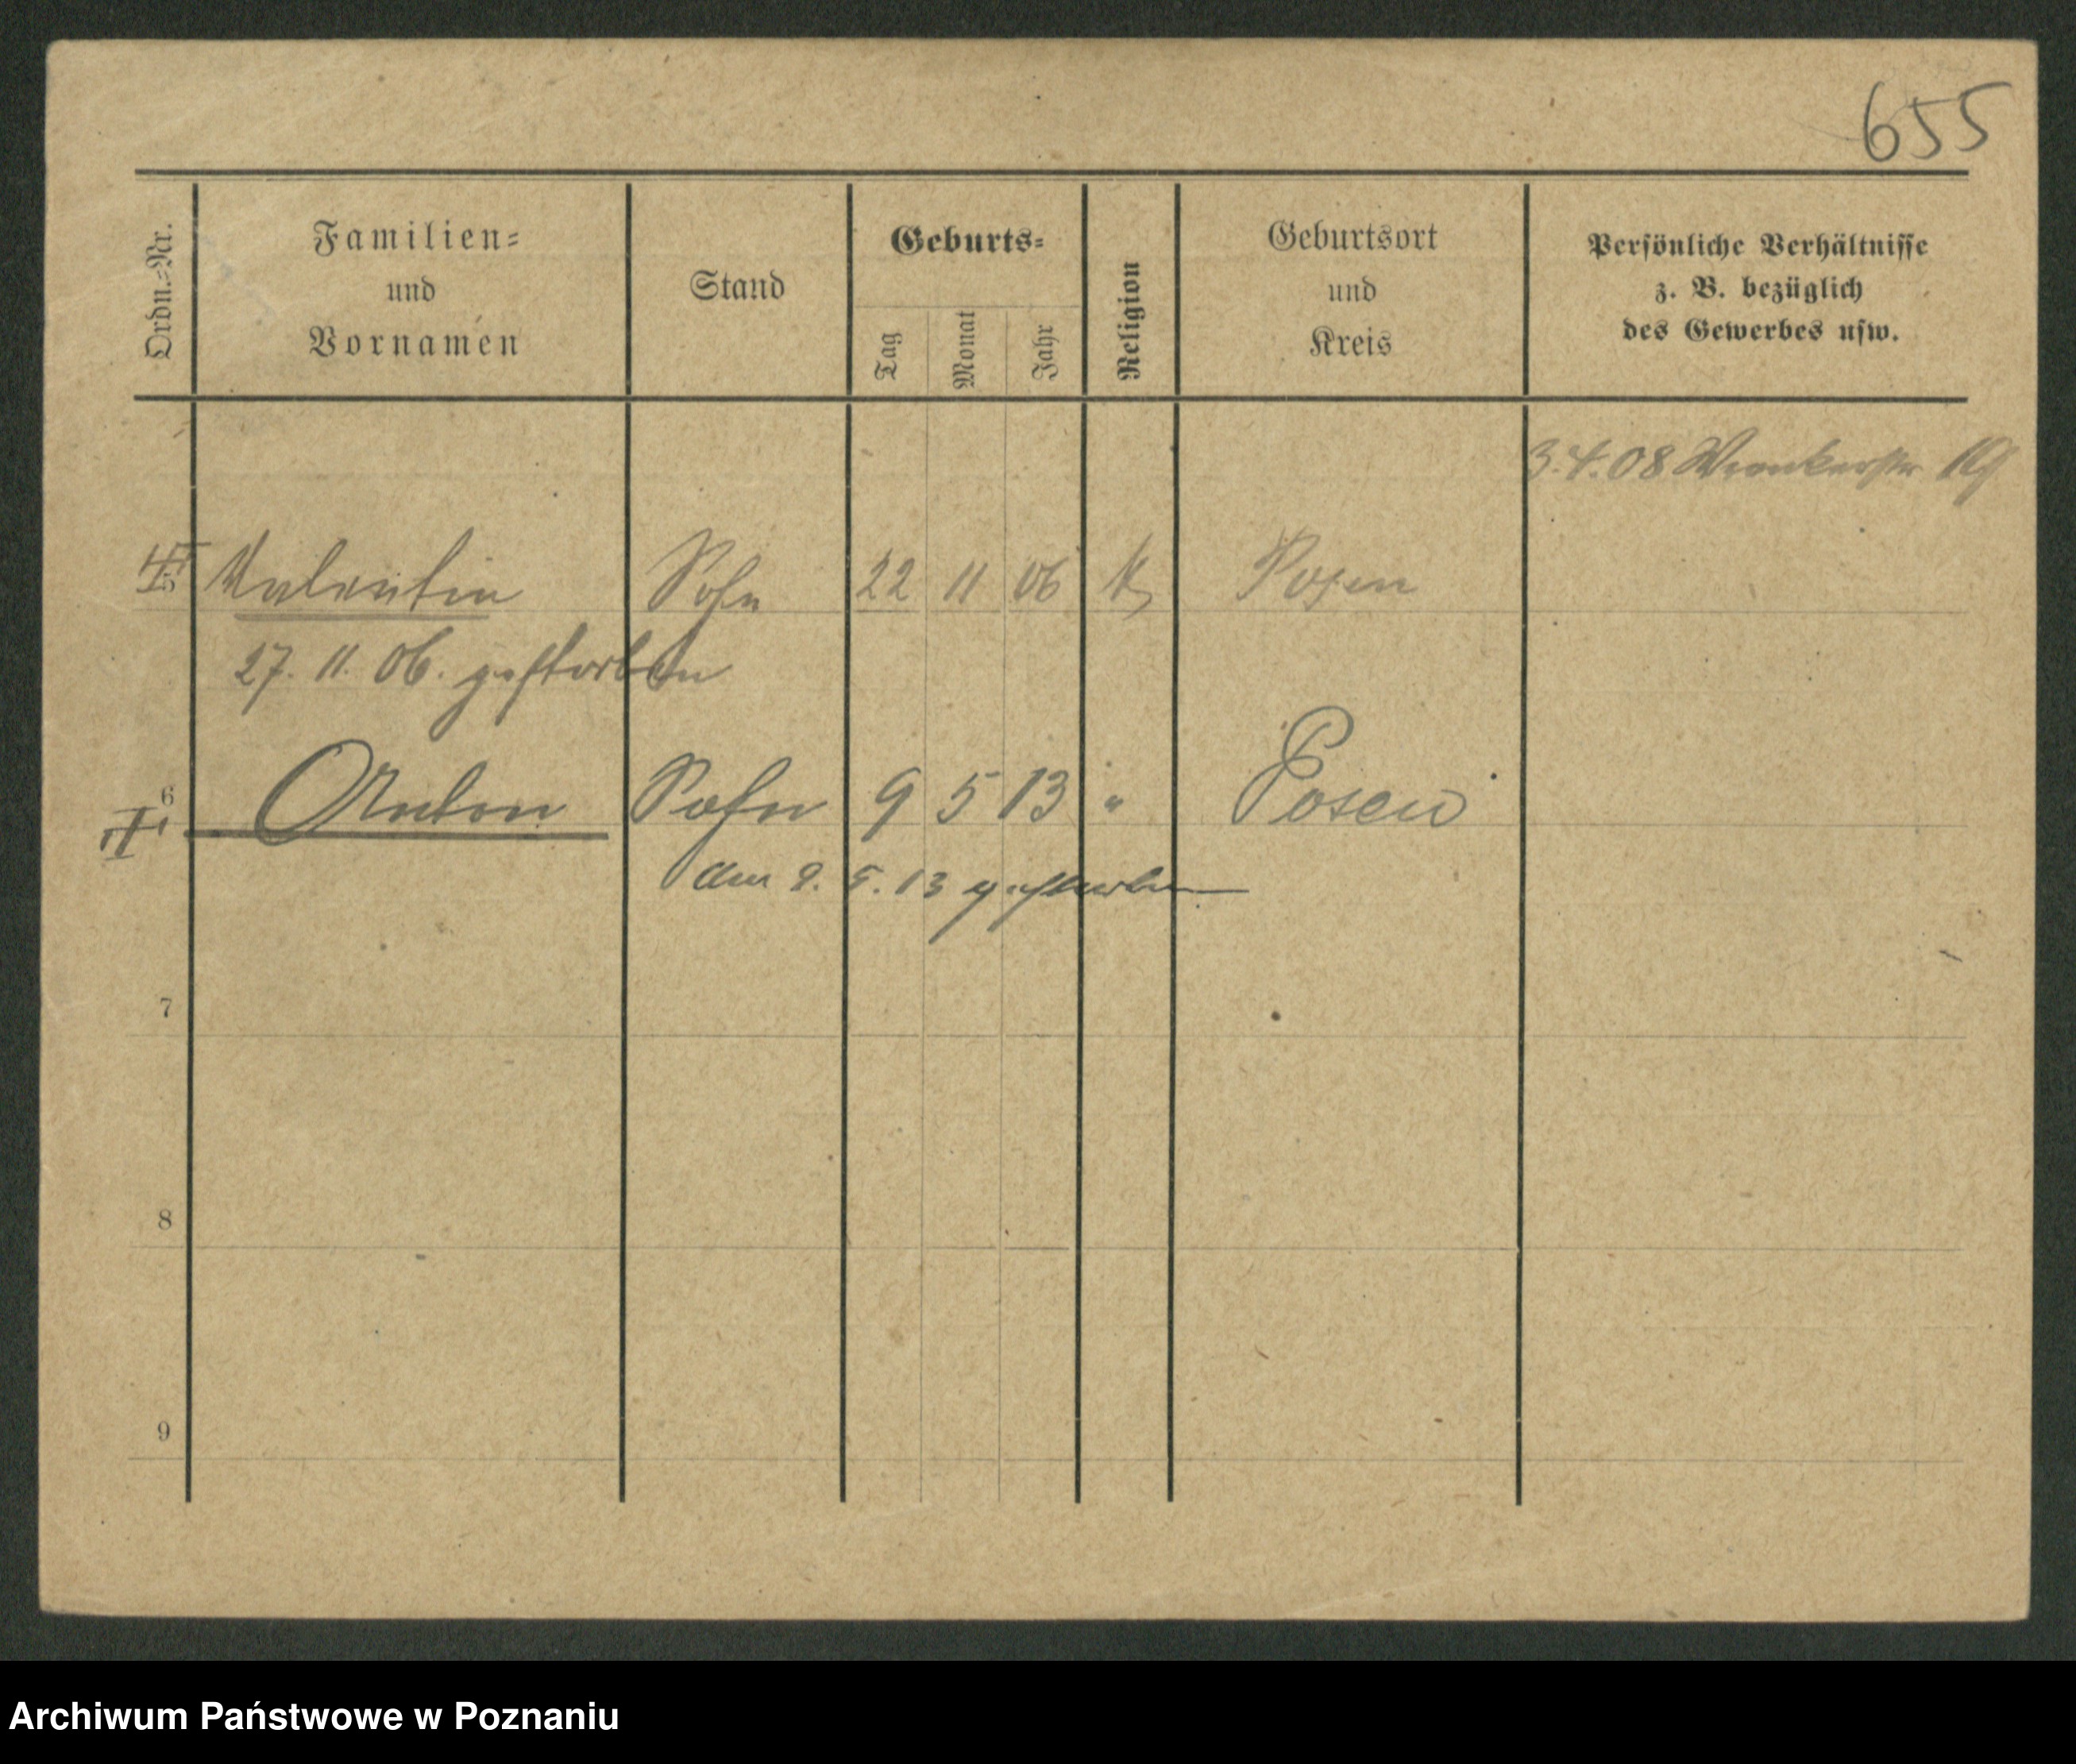 655
Ordn.-Nr.
Familien-
und
Vornamen
Stand
Geburts-
Tag
Monat
Jahr
Religion
Geburtsort
und
Kreis
Persönliche Verhältnisse
z. B. bezüglich
des Gewerbes usw.
3.4.08 Wronkerstr 19
5 Valentin Sohn 22 11 06 K Posen
27. 11. 06. gestorben
6 Anton Sohn 9 5 13 " Posen
am 9. 5. 13 gestorben
7
8
9
Archiwum Państwowe w Poznaniu